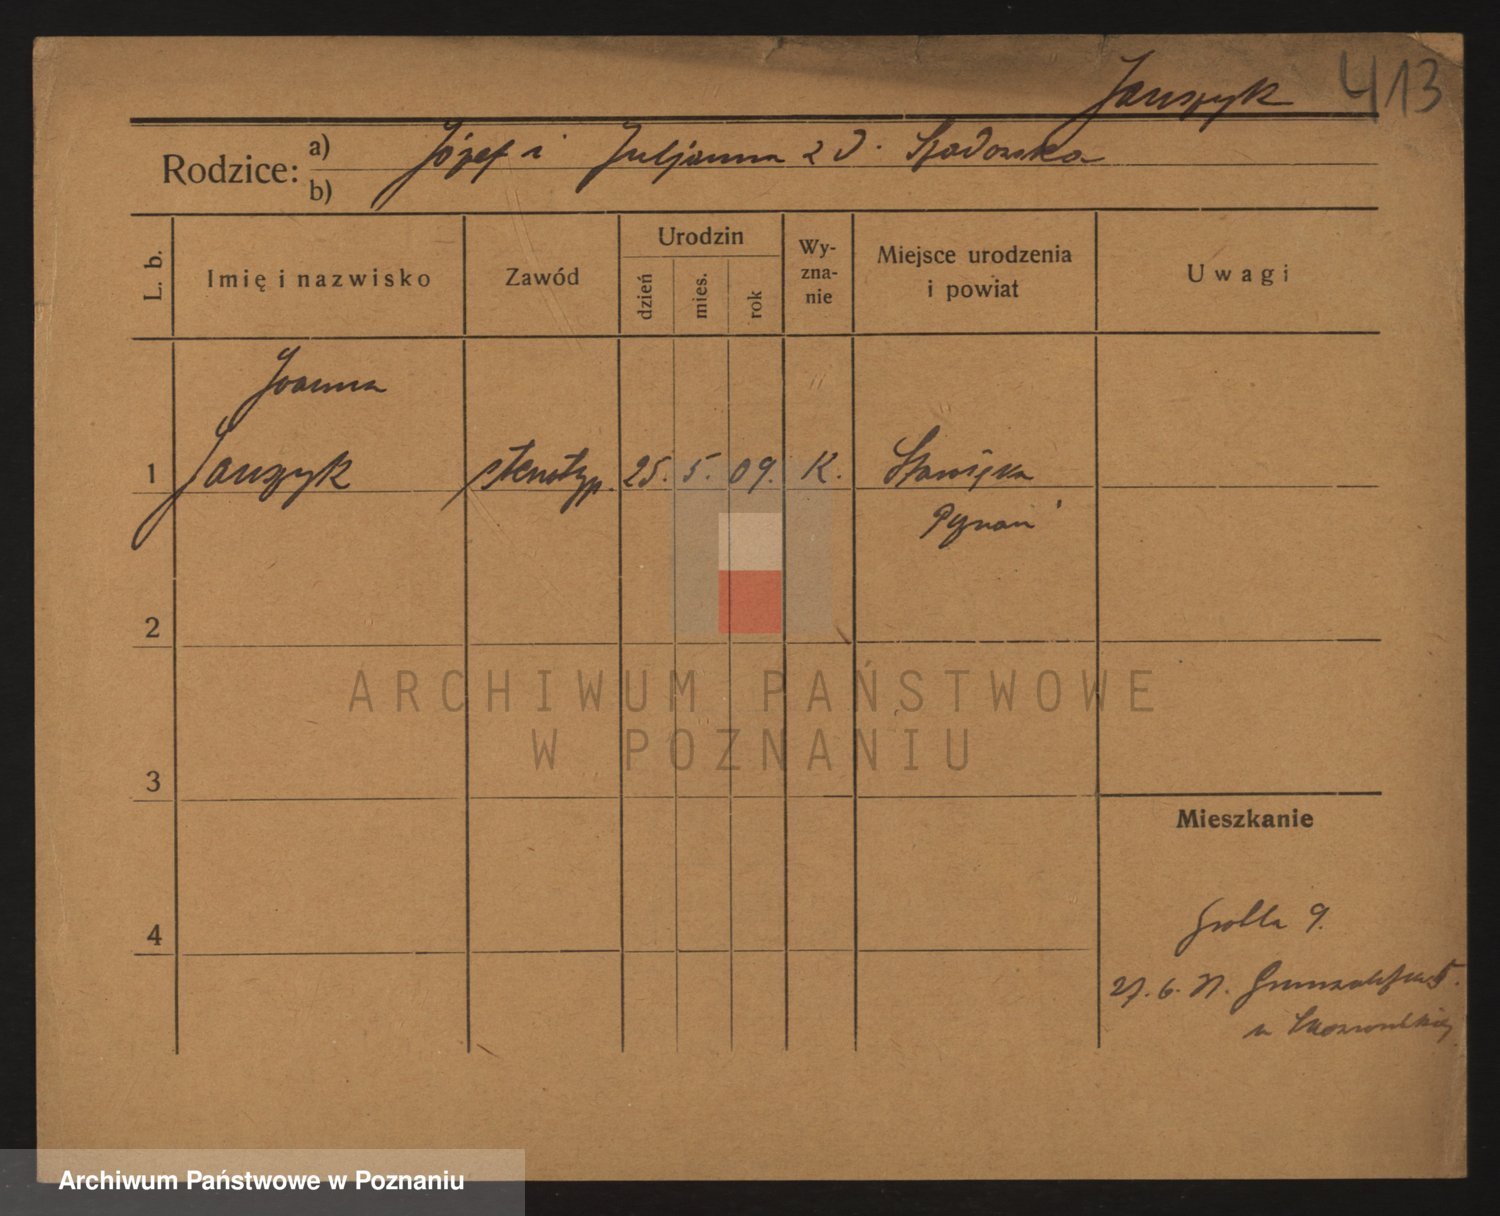 Janszyk 413
Rodzice:
a) Józef i Juljanna z d.
b)
L. b.
Imię i nazwisko
Zawód
Urodzin
dzień
mies.
rok
Wy-
zna-
nie
Miejsce urodzenia
i powiat
Uwagi
Joanna
1 Janszyk stenotyp. 25. 5. 09. K.
2
3
4
Mieszkanie
Grobla 9.
27. 6.
ARCHIWUM PAŃSTWOWE
W POZNANIU
Archiwum Państwowe w Poznaniu